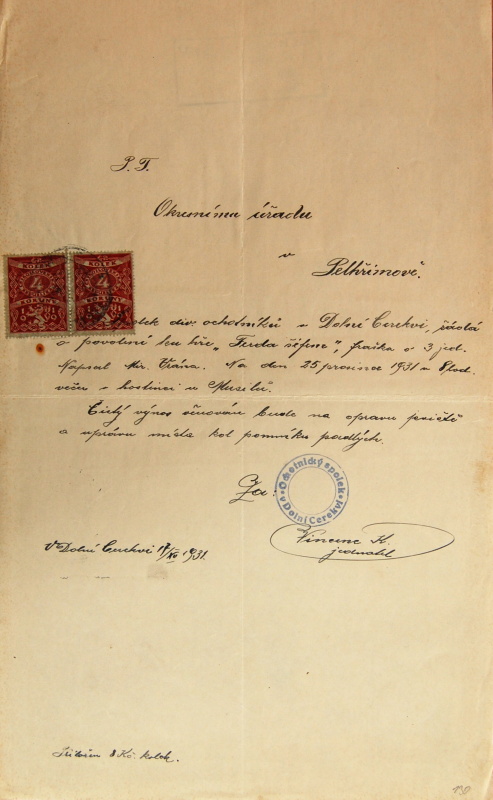 P. T.
Okresnímu úřadu
v
Pelhřimově.
KOLEK KOLEK
4 4
KORUNY KORUNY
spolek div. ochotníků v Dolní Cerekvi, žádá
o povolení ku hře „ šéfem", fraška o 3 jed.
Napsal Mir. Vrána. Na den 25 prosince 1931 v 8 hod
večer v hostinci u Musilů.
Čistý výnos věnován bude na opravu jeviště
a úpravu místa kol pomníku padlých.
Za:
Ochotnický spolek
v Dolní Cerekvi
Vincenc K.
jednatel
V Dolní Cerekvi 17/XII 1931.
8 Kč. kolek.
130